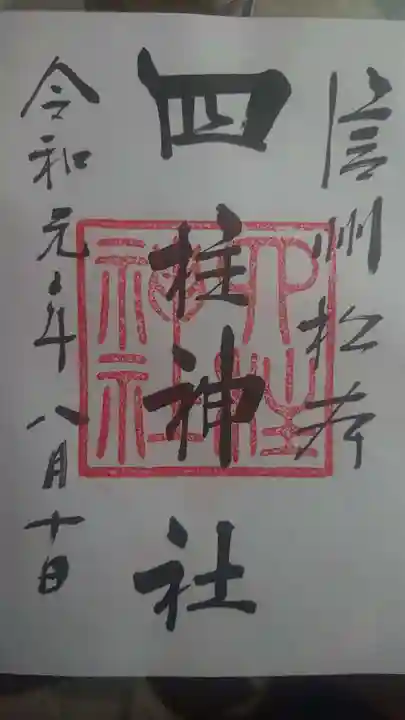 信州松本
四柱神社
四柱神社
令和元年八月十日